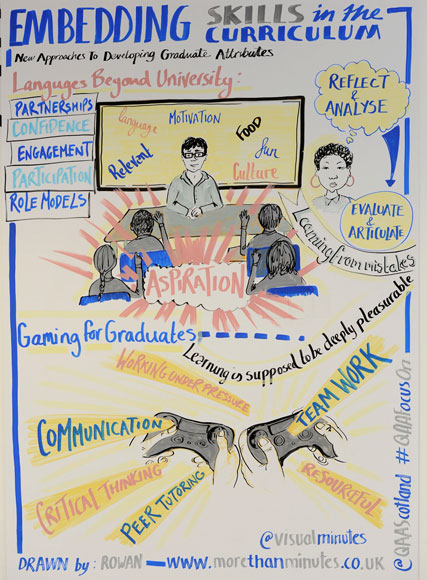 EMBEDDING SKILLS in the CURRICULUM
New Approaches To Developing Graduate Attributes
Languges Beyond University:
PARTNERSHIPS
CONFIDENCE
ENGAGEMENT
PARTICIPATION
ROLE MODELS
language
MOTIVATION
FOOD
Relevant
fun
Culture
ASPIRATION
REFLECT &
ANALYSE
EVALUATE &
ARTICULATE
Learning from mistakes
Gaming for Graduates
Learning is supposed to be deeply pleasurable
WORKING UNDER PRESSURE
TEAM WORK
COMMUNICATION
CRITICAL THINKING
PEER TUTORING
RESOURCEFUL
@visualminutes
@QAAScotland #QAAFocusOn
DRAWN by: ROWAN — WWW.morethanminutes.co.uk